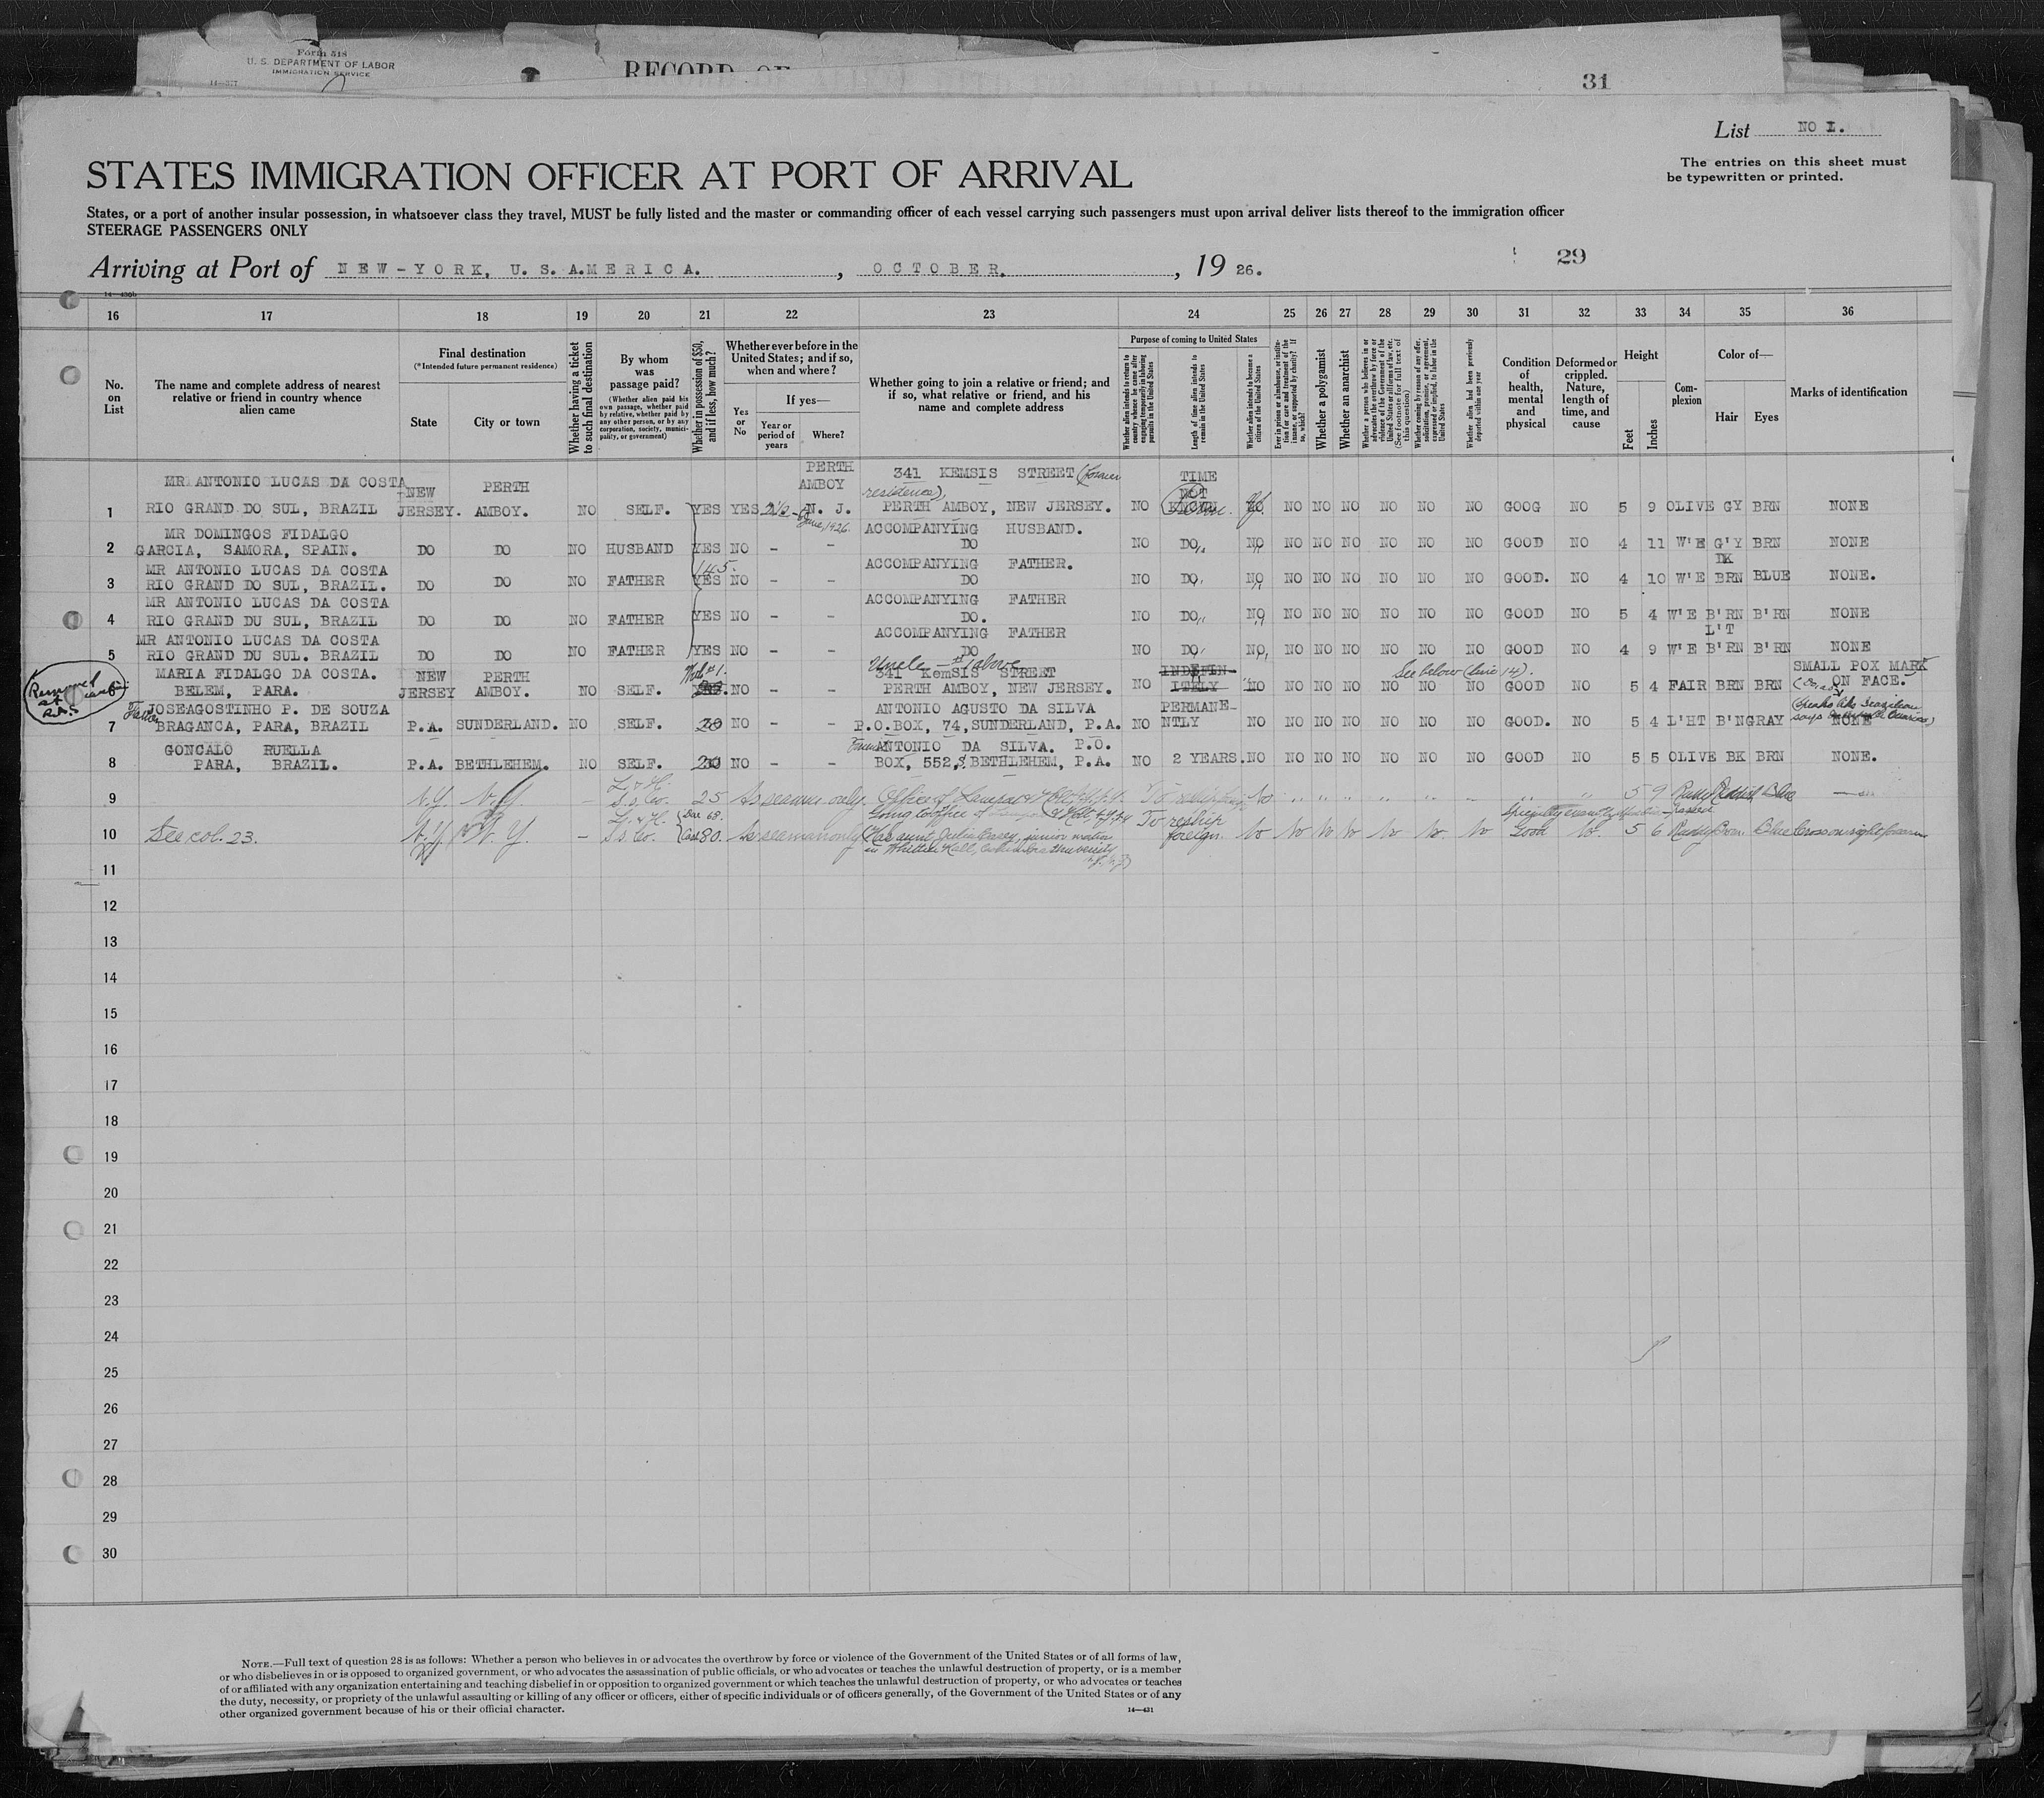 Form 518
U. S. DEPARTMENT OF LABOR
IMMIGRATION SERVICE
RECORD OF
31
List NO I.
The entries on this sheet must
be typewritten or printed.
STATES IMMIGRATION OFFICER AT PORT OF ARRIVAL
States, or a port of another insular possession, in whatsoever class they travel, MUST be fully listed and the master or commanding officer of each vessel carrying such passengers must upon arrival deliver lists thereof to the immigration officer
STEERAGE PASSENGERS ONLY
Arriving at Port of NEW-YORK, U. S. A.MERICA. , OCTOBER. , 19 26.
29
16 17 18 19 20 21 22 23 24 25 26 27 28 29 30 31 32 33 34 35 36
No. on List
The name and complete address of nearest relative or friend in country whence alien came
Final destination
(*Intended future permanent residence)
State
City or town
Whether having a ticket to such final destination
By whom was passage paid?
(Whether alien paid his own passage, whether paid by relative, whether paid by any other person, or by any corporation, society, municipality, or government)
Whether in possession of $50, and if less, how much?
Whether ever before in the United States; and if so, when and where?
Yes or No
If yes—
Year or period of years
Where?
Whether going to join a relative or friend; and if so, what relative or friend, and his name and complete address
Purpose of coming to United States
Whether alien intends to return to country whence he came after engaging temporarily in laboring pursuits in the United States
Length of time alien intends to remain in the United States
Whether alien intends to become a citizen of the United States
Ever in prison or almshouse, or institution for care and treatment of the insane, or supported by charity? If so, which?
Whether a polygamist
Whether an anarchist
Whether a person who believes in or advocates the overthrow by force or violence of the Government of the United States or all forms of law, etc. (See footnote for full text of this question)
Whether coming by reason of any offer, solicitation, promise, or agreement, expressed or implied, to labor in the United States
Whether alien had been previously deported within one year
Condition of health, mental and physical
Deformed or crippled. Nature, length of time, and cause
Height
Feet
Inches
Complexion
Color of—
Hair
Eyes
Marks of identification
MR ANTONIO LUCAS DA COSTA NEW PERTH PERTH AMBOY 341 KEMSIS STREET (former residence), TIME NOT
1 RIO GRAND DO SUL, BRAZIL JERSEY. AMBOY. NO SELF. YES YES N. J. June, 1926. PERTH AMBOY, NEW JERSEY. NO NO NO NO NO NO NO GOOG NO 5 9 OLIVE GY BRN NONE
MR DOMINGOS FIDALGO ACCOMPANYING HUSBAND.
2 GARCIA, SAMORA, SPAIN. DO DO NO HUSBAND YES NO - - DO NO DO NO NO NO NO NO NO NO GOOD NO 4 11 W'E G'Y BRN NONE
MR ANTONIO LUCAS DA COSTA 145. ACCOMPANYING FATHER. DK
3 RIO GRAND DO SUL, BRAZIL. DO DO NO FATHER YES NO - - DO NO DO NO NO NO NO NO NO NO GOOD. NO 4 10 W'E BRN BLUE NONE.
MR ANTONIO LUCAS DA COSTA ACCOMPANYING FATHER
4 RIO GRAND DU SUL, BRAZIL DO DO NO FATHER YES NO - - DO. NO DO NO NO NO NO NO NO NO GOOD NO 5 4 W'E B'RN B'RN NONE
MR ANTONIO LUCAS DA COSTA ACCOMPANYING FATHER L'T
5 RIO GRAND DU SUL. BRAZIL DO DO NO FATHER YES NO - - DO NO DO NO NO NO NO NO NO NO GOOD NO 4 9 W'E B'RN B'RN NONE
Removed at
MARIA FIDALGO DA COSTA. NEW PERTH With #1. Uncle - #1 above 341 KemSIS STREET INDEFIN- See below (Line 14). SMALL POX MARK
BELEM, PARA. JERSEY AMBOY. NO SELF. NO - - PERTH AMBOY, NEW JERSEY. NO ITELY NO NO NO NO NO NO NO GOOD NO 5 4 FAIR BRN BRN ON FACE.
Father JOSEAGOSTINHO P. DE SOUZA ANTONIO AGUSTO DA SILVA PERMANE- (Speaks like Brazilian says
7 BRAGANCA, PARA, BRAZIL P.A. SUNDERLAND. NO SELF. 30 NO - - P.O.BOX, 74, SUNDERLAND, P.A. NO NTLY NO NO NO NO NO NO NO GOOD. NO 5 4 L'HT B'N GRAY NONE
GONCALO RUELLA ANTONIO DA SILVA. P.O.
8 PARA, BRAZIL. P.A. BETHLEHEM. NO SELF. 20 NO - - BOX, 552, S. BETHLEHEM, P.A. NO 2 YEARS. NO NO NO NO NO NO NO GOOD NO 5 5 OLIVE BK BRN NONE.
9 N.Y. N.Y. L. & H. S.S. Co. 25 As seaman only. Office of Lamport & Holt, N.Y. To reship No 5 9 Ruddy Reddish Blue —
10 See col. 23. N.Y. N.Y. — L. & H. S.S. Co. 80. As seaman only Going to office of Lamport & Holt, (Has aunt, Julia Casey, junior matron in Whittier Hall, Columbia University N.Y. To reship foreign. No No No No No No No Good No. 5 6 Ruddy Brn. Blue Cross on right forearm
11
12
13
14
15
16
17
18
19
20
21
22
23
24
25
26
27
28
29
30
NOTE.—Full text of question 28 is as follows: Whether a person who believes in or advocates the overthrow by force or violence of the Government of the United States or of all forms of law,
or who disbelieves in or is opposed to organized government, or who advocates the assassination of public officials, or who advocates or teaches the unlawful destruction of property, or is a member
of or affiliated with any organization entertaining and teaching disbelief in or opposition to organized government or which teaches the unlawful destruction of property, or who advocates or teaches
the duty, necessity, or propriety of the unlawful assaulting or killing of any officer or officers, either of specific individuals or of officers generally, of the Government of the United States or of any
other organized government because of his or their official character.
14—431